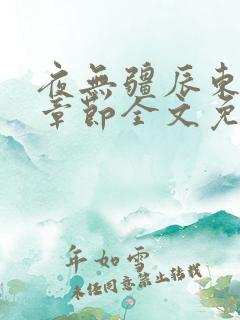 夜无疆辰东
章节全文免
年如雪
未经同意禁止转载